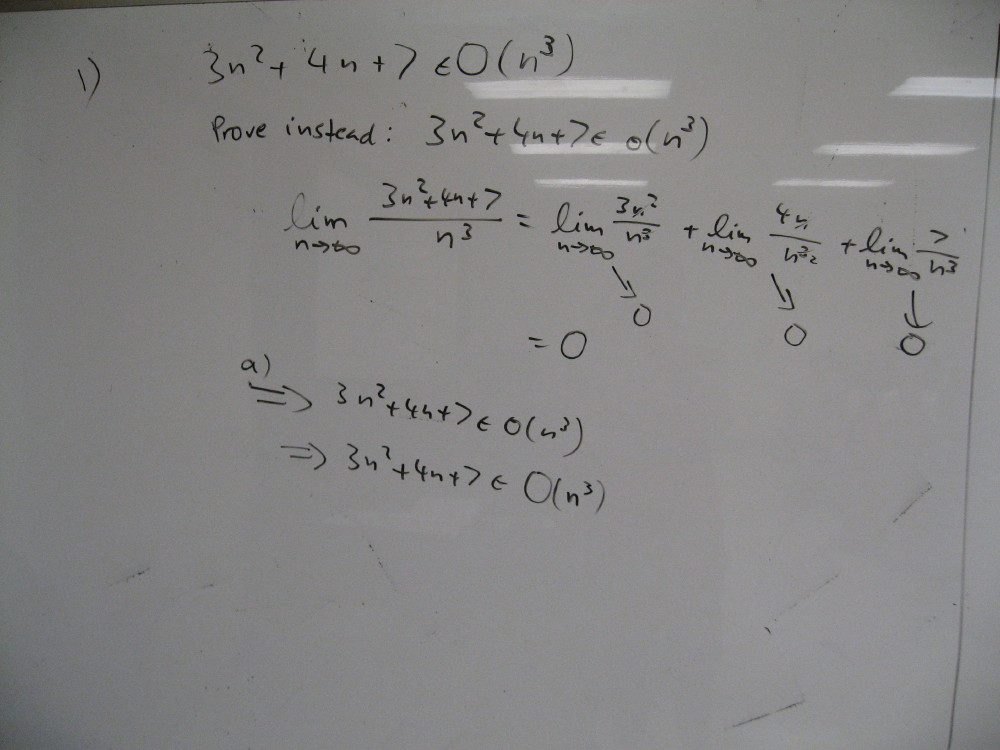 1) 3n²+ 4n+7 ∈ O(n³)
Prove instead: 3n²+4n+7 ∈ o(n³)
lim n→∞ (3n²+4n+7)/n³ = lim n→∞ 3n²/n³ + lim n→∞ 4n/n³² + lim n→∞ 7/n³
↘ 0 ↘ 0 ↓ 0
= 0
a)
⇒ 3n²+4n+7 ∈ o(n³)
⇒ 3n²+4n+7 ∈ O(n³)